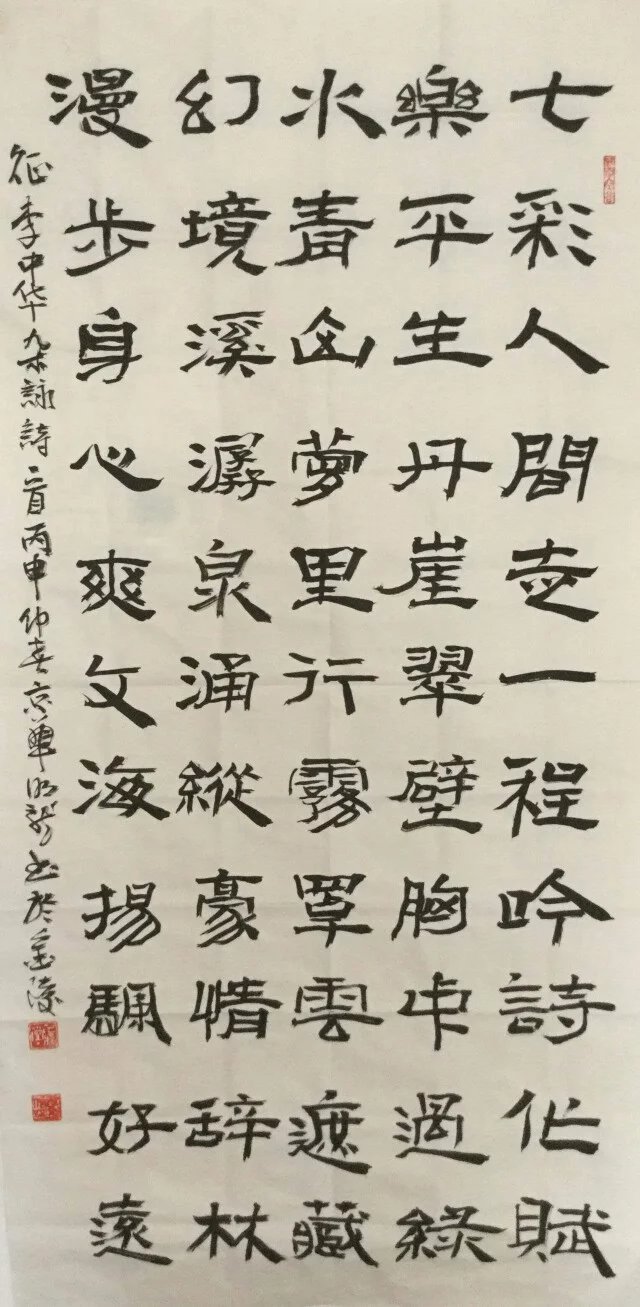 七彩人間走一程吟詩作賦
樂平生丹崖翠壁胸中過綠
水青山夢里行霧罩雲遮藏
幻境溪潺泉涌縱豪情辞林
漫步身心爽文海揚颿好遠
征 李中华 詠詩一首丙申仲春 书於金陵